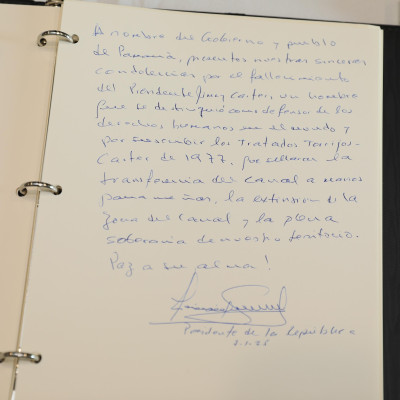 A nombre del Gobierno y pueblo
de Panamá, presento nuestras sinceras
condolencias por el fallecimiento
del Presidente Jimmy Carter, un hombre
que se distinguió como defensor de los
derechos humanos en el mundo y
por suscribir los Tratados Torrijos-
Carter de 1977, que sellaron la
transferencia del canal a manos
panameñas, la extinsión de la
Zona del Canal y la plena
soberanía de nuestro territorio.
Paz a su alma!
Presidente de la República